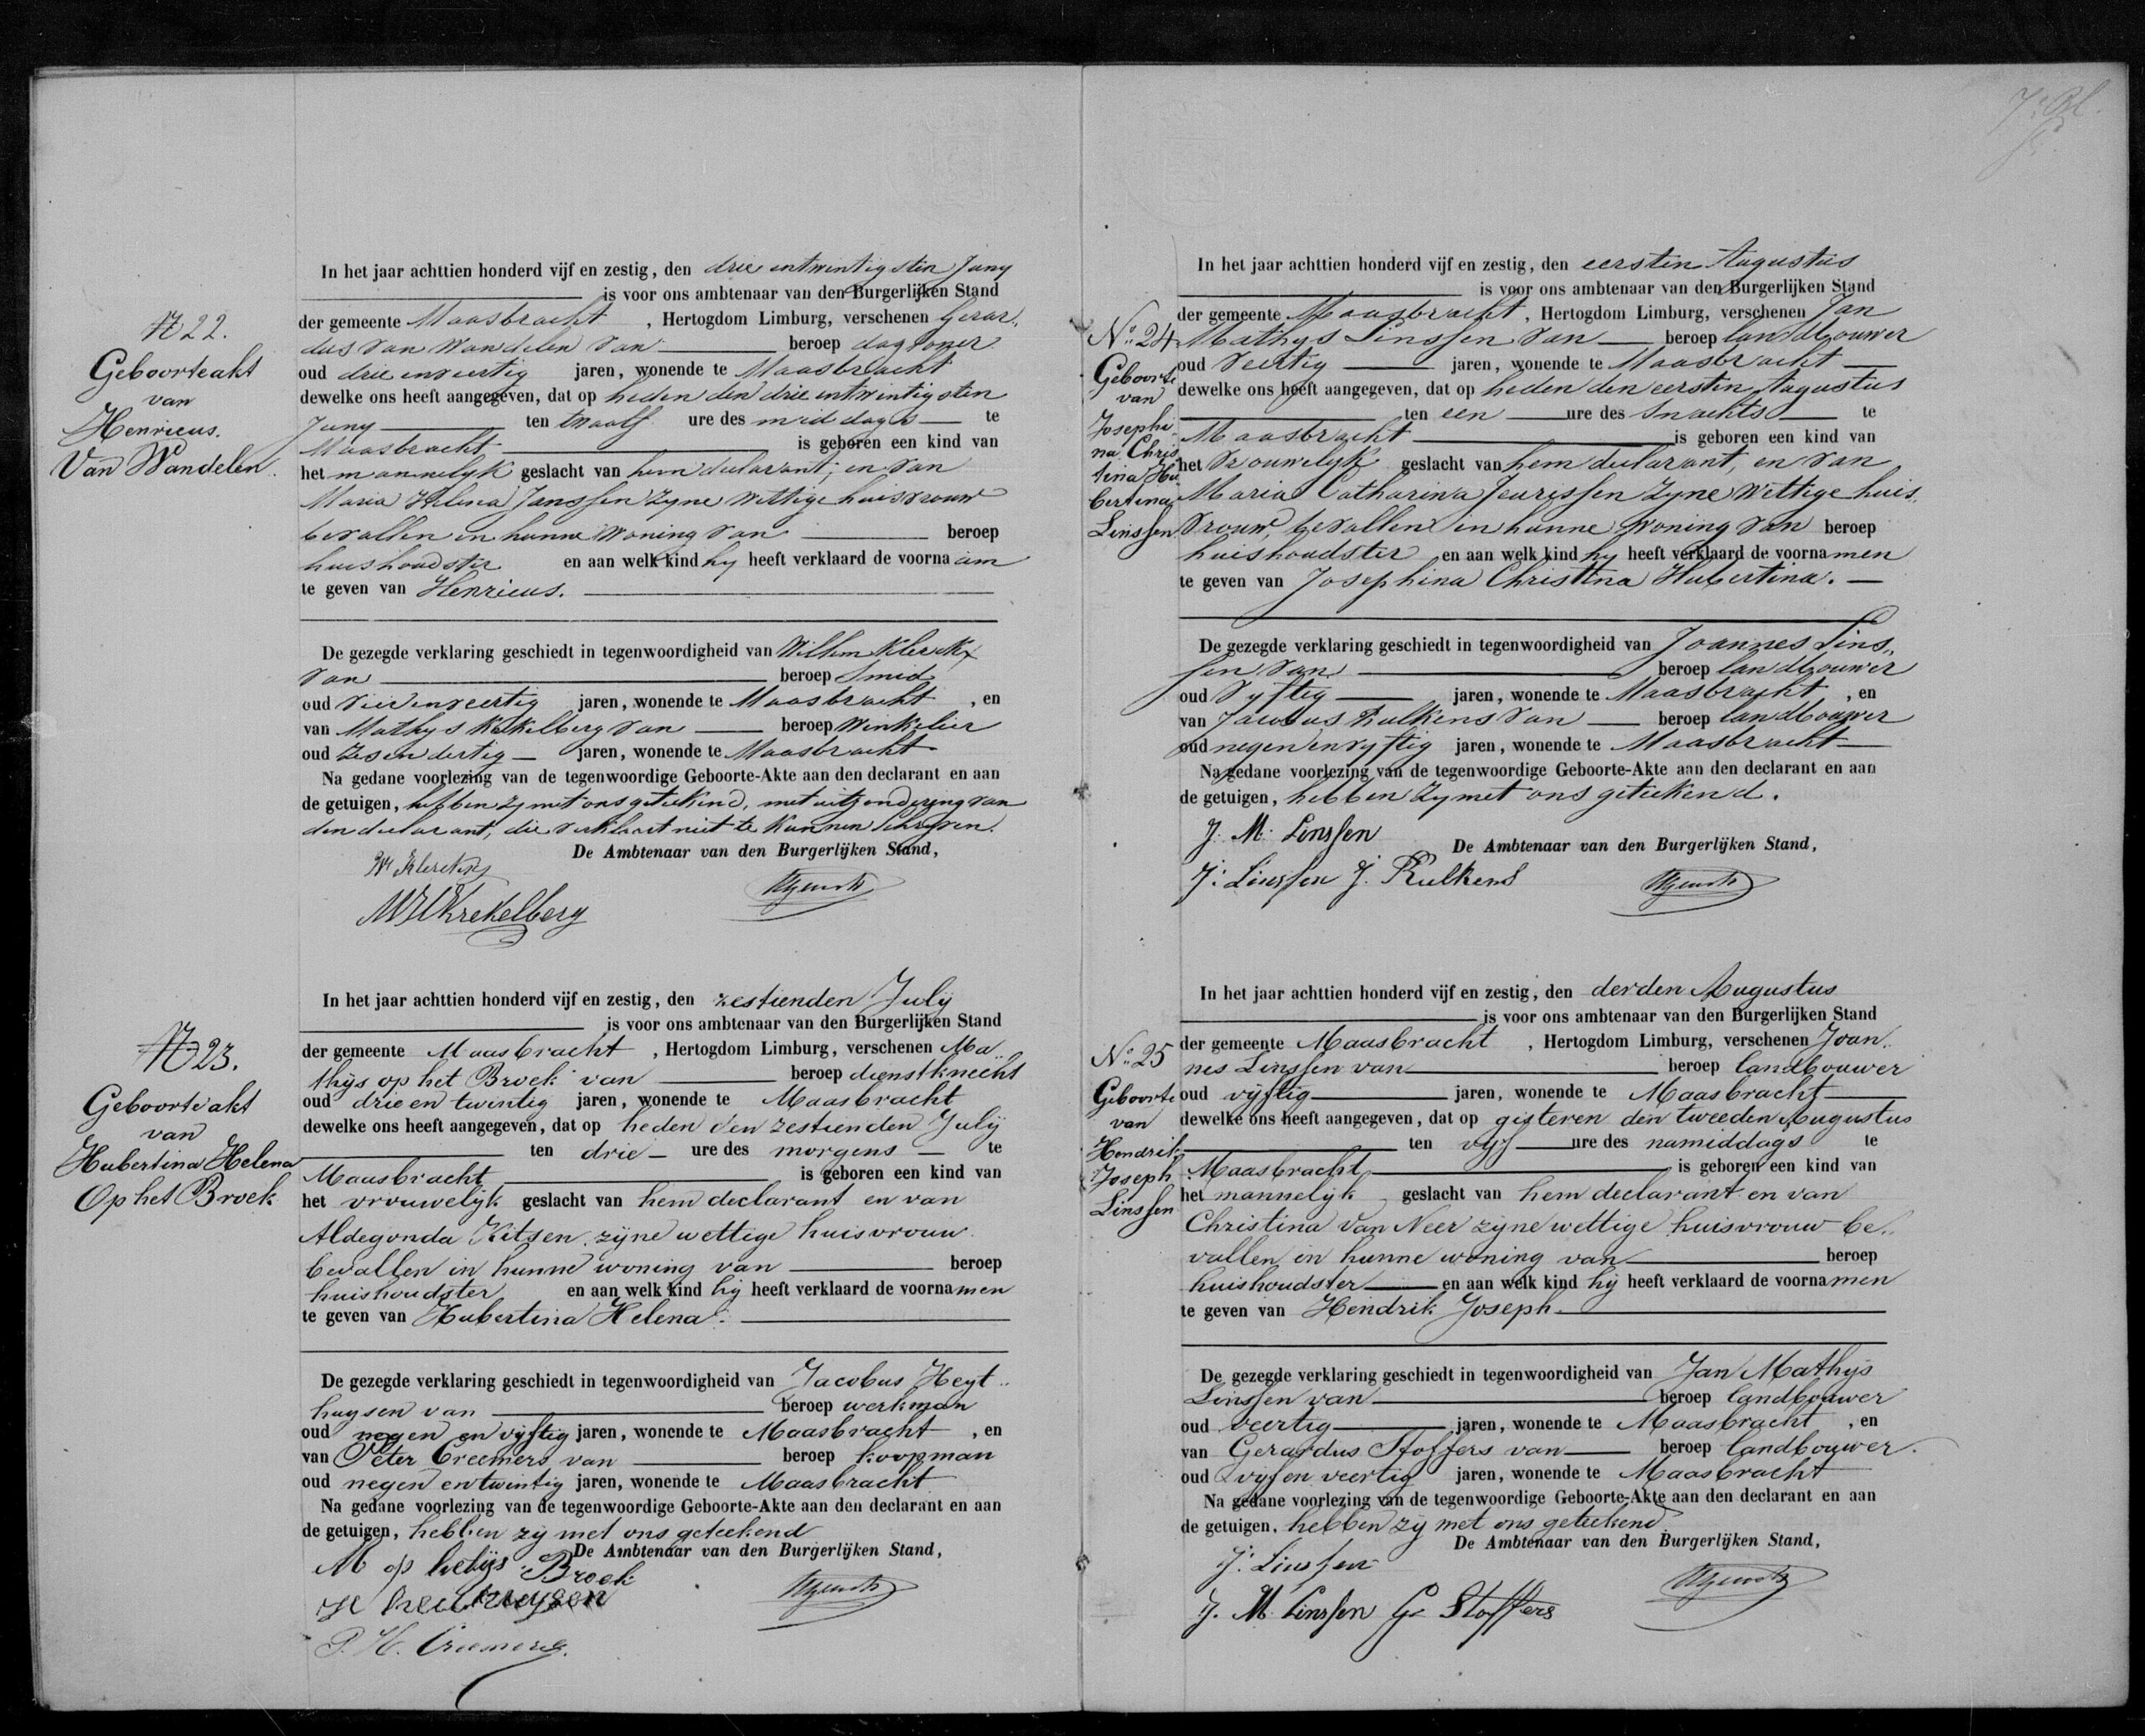 N 22.
Geboorteakt
van
Henricus.
Van Wandelen.
In het jaar achttien honderd vijf en zestig, den drie entwintigsten Juny
is voor ons ambtenaar van den Burgerlijken Stand
der gemeente Maasbracht, Hertogdom Limburg, verschenen Gerar„
dus van Wandelen van beroep dagloner
oud drie enveertig jaren, wonende te Maasbracht
dewelke ons heeft aangegeven, dat op heden den drie entwintigsten
Juny ten twaalf ure des middags te
Maasbracht is geboren een kind van
het mannelyk geslacht van hem declarant, en van
Maria Helena Janssen zyne wettige huisvrouw
bevallen in hunne woning van beroep
huishoudster en aan welk kind hy heeft verklaard de voornaam
te geven van Henricus.
De gezegde verklaring geschiedt in tegenwoordigheid van Willem Klerckx
van beroep Smid
oud vierenveertig jaren, wonende te Maasbracht, en
van Mathys Krekelberg van beroep Winkelier
oud zesendertig jaren, wonende te Maasbracht
Na gedane voorlezing van de tegenwoordige Geboorte-Akte aan den declarant en aan
de getuigen, hebben zy met ons geteekend, met uitzondering van
den declarant, die verklaart niet te kunnen schryven.
De Ambtenaar van den Burgerlijken Stand,
W Klerckx
Krekelberg
N 23.
Geboorteakt
van
Hubertina Helena
Op het Broek
In het jaar achttien honderd vijf en zestig, den zestienden July
is voor ons ambtenaar van den Burgerlijken Stand
der gemeente Maasbracht, Hertogdom Limburg, verschenen Ma„
thijs op het Broek van beroep dienstknecht
oud drie en twintig jaren, wonende te Maasbracht
dewelke ons heeft aangegeven, dat op heden den zestienden July
ten drie ure des morgens te
Maasbracht is geboren een kind van
het vrouwelijk geslacht van hem declarant en van
Aldegonda Kitsen zijne wettige huisvrouw
bevallen in hunne woning van beroep
huishoudster en aan welk kind hij heeft verklaard de voornamen
te geven van Hubertina Helena.
De gezegde verklaring geschiedt in tegenwoordigheid van Jacobus Heyt„
huysen van beroep werkman
oud negen en vijftig jaren, wonende te Maasbracht, en
van Peter Creemers van beroep koopman
oud negen entwintig jaren, wonende te Maasbracht
Na gedane voorlezing van de tegenwoordige Geboorte-Akte aan den declarant en aan
de getuigen, hebben zij met ons geteekend
De Ambtenaar van den Burgerlijken Stand,
M op Broek
P. H. Creemers.
No. 24
Geboorte
van
Josephi
na Chris
tina Hu
bertina
Linssen
In het jaar achttien honderd vijf en zestig, den eersten Augustus
is voor ons ambtenaar van den Burgerlijken Stand
der gemeente Maasbracht, Hertogdom Limburg, verschenen Jan
Mathys Linssen van beroep landbouwer
oud veertig jaren, wonende te Maasbracht
dewelke ons heeft aangegeven, dat op heden den eersten Augustus
ten een ure des Snachts te
Maasbracht is geboren een kind van
het vrouwelyk geslacht van hem declarant, en van
Maria Catharina Jeurissen zyne wettige huis„
vrouw, bevallen in hunne woning van beroep
huishoudster en aan welk kind hy heeft verklaard de voornamen
te geven van Josephina Christina Hubertina.
De gezegde verklaring geschiedt in tegenwoordigheid van Joannes Lins„
sen van beroep landbouwer
oud vyftig jaren, wonende te Maasbracht, en
van Jacobus Rulkens van beroep landbouwer
oud negen envyftig jaren, wonende te Maasbracht
Na gedane voorlezing van de tegenwoordige Geboorte-Akte aan den declarant en aan
de getuigen, hebben zy met ons geteekend.
J. M. Linssen
De Ambtenaar van den Burgerlijken Stand,
J: Linssen J. Rulkens
No. 25
Geboorte
van
Hendrik
Joseph
Linssen
In het jaar achttien honderd vijf en zestig, den derden Augustus
is voor ons ambtenaar van den Burgerlijken Stand
der gemeente Maasbracht, Hertogdom Limburg, verschenen Joan„
nes Linssen van beroep landbouwer
oud vijftig jaren, wonende te Maasbracht
dewelke ons heeft aangegeven, dat op gisteren den tweeden Augustus
ten vijf ure des namiddags te
Maasbracht is geboren een kind van
het mannelijk geslacht van hem declarant en van
Christina Van Neer zijne wettige huisvrouw be„
vallen in hunne woning van beroep
huishoudster en aan welk kind hij heeft verklaard de voornamen
te geven van Hendrik Joseph
De gezegde verklaring geschiedt in tegenwoordigheid van Jan Mathijs
Linssen van beroep landbouwer
oud veertig jaren, wonende te Maasbracht, en
van Gerardus Stoffers van beroep landbouwer.
oud vijf en veertig jaren, wonende te Maasbracht
Na gedane voorlezing van de tegenwoordige Geboorte-Akte aan den declarant en aan
de getuigen, hebben zij met ons geteekend
De Ambtenaar van den Burgerlijken Stand,
J: Linssen
J. M. Linssen G Stoffers